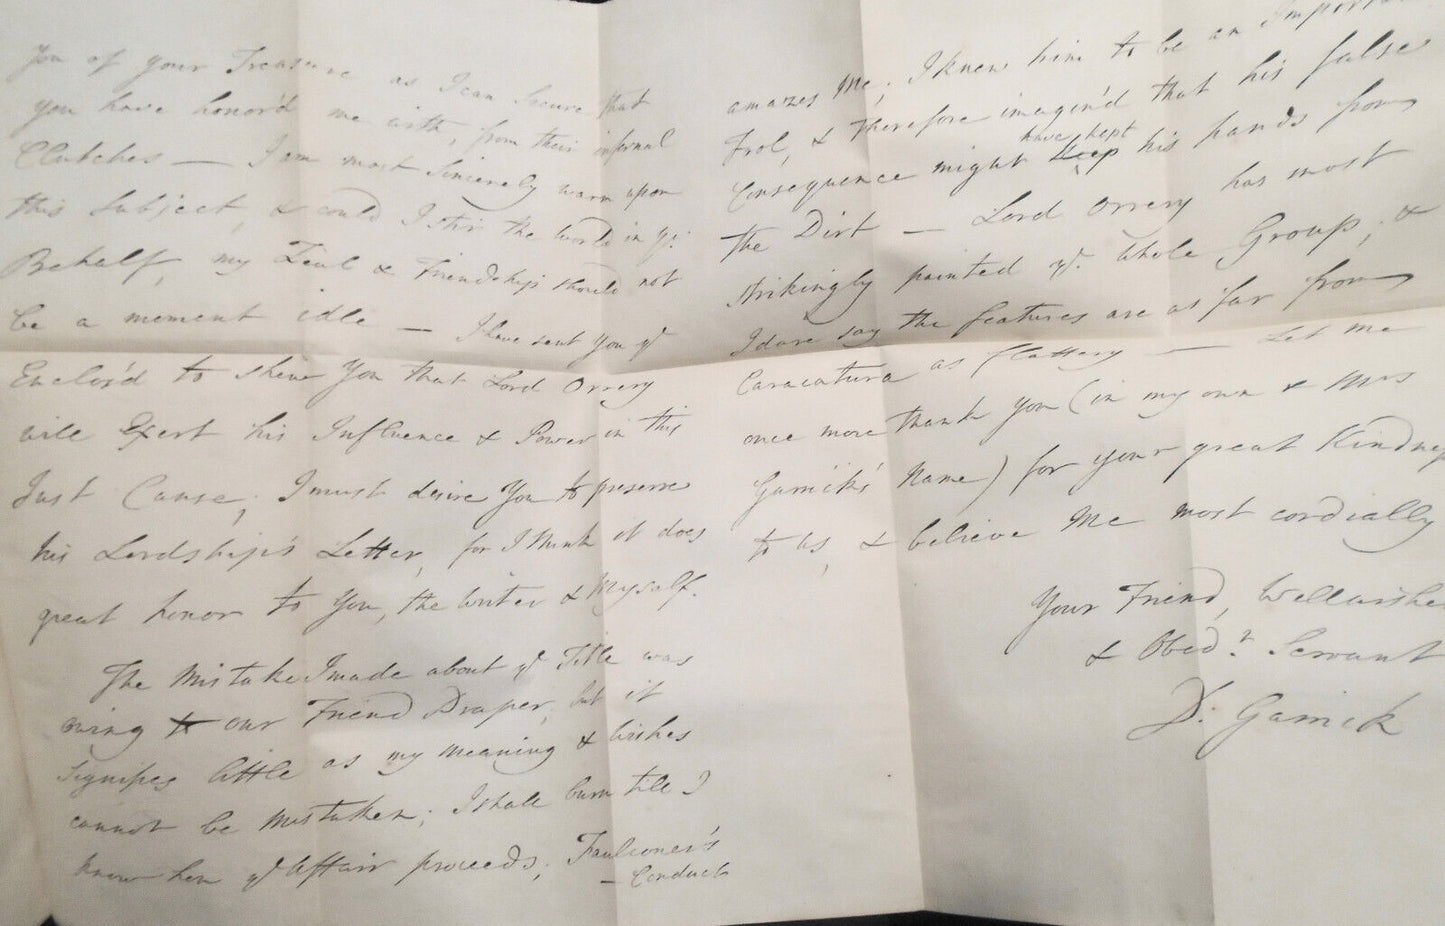 You of your Treasure as I can Secure that
you have honor'd me with, from their infernal
Clutches — I am most Sincerely warm upon
this Subject, & could I stir the World in yr.
Behalf, my Zeal & Friendship should not
be a moment idle — I have sent You ye
Enclos'd to shew You that Lord Orrery
will Exert his Influence & Power in this
Just Cause; I must desire You to preserve
his Lordship's Letter, for I think it does
great honor to You, the Writer & Myself.
The Mistake I made about ye Title was
owing to our Friend Draper, but it
signifies little as my meaning & Wishes
cannot be mistaken; I shall burn till I
know how ye Affair proceeds; Faulconer's
— Conduct
amazes Me; I knew him to be an Important
Fool, & therefore imagin'd that his false
have kept
Consequence might keep his hands from
the Dirt — Lord Orrery has most
strikingly painted ye. Whole Group, &
I dare say the features are as far from
Caracatura as flattery — Let me
once more thank You (in my own & Mrs
Garrick's Name) for your great Kindness
to us, & believe Me most cordially
Your Friend, Wellwisher
& Obedt. Servant
D: Garrick